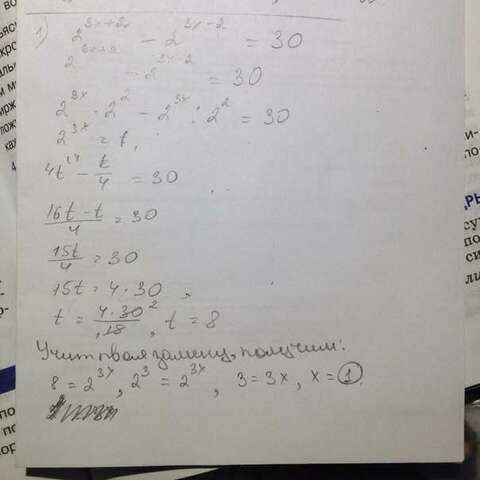 1) 2^{3x+2x} - 2^{3x-2} = 30
2^{3x+2} - 2^{3x-2} = 30
2^{3x} · 2^2 - 2^{3x} : 2^2 = 30
2^{3x} = t,
4t - t/4 = 30
(16t - t)/4 = 30
15t/4 = 30
15t = 4·30,
t = 4·30/15, t = 8
Учитывая замену, получим:
8 = 2^{3x}, 2^3 = 2^{3x}, 3 = 3x, x = 1